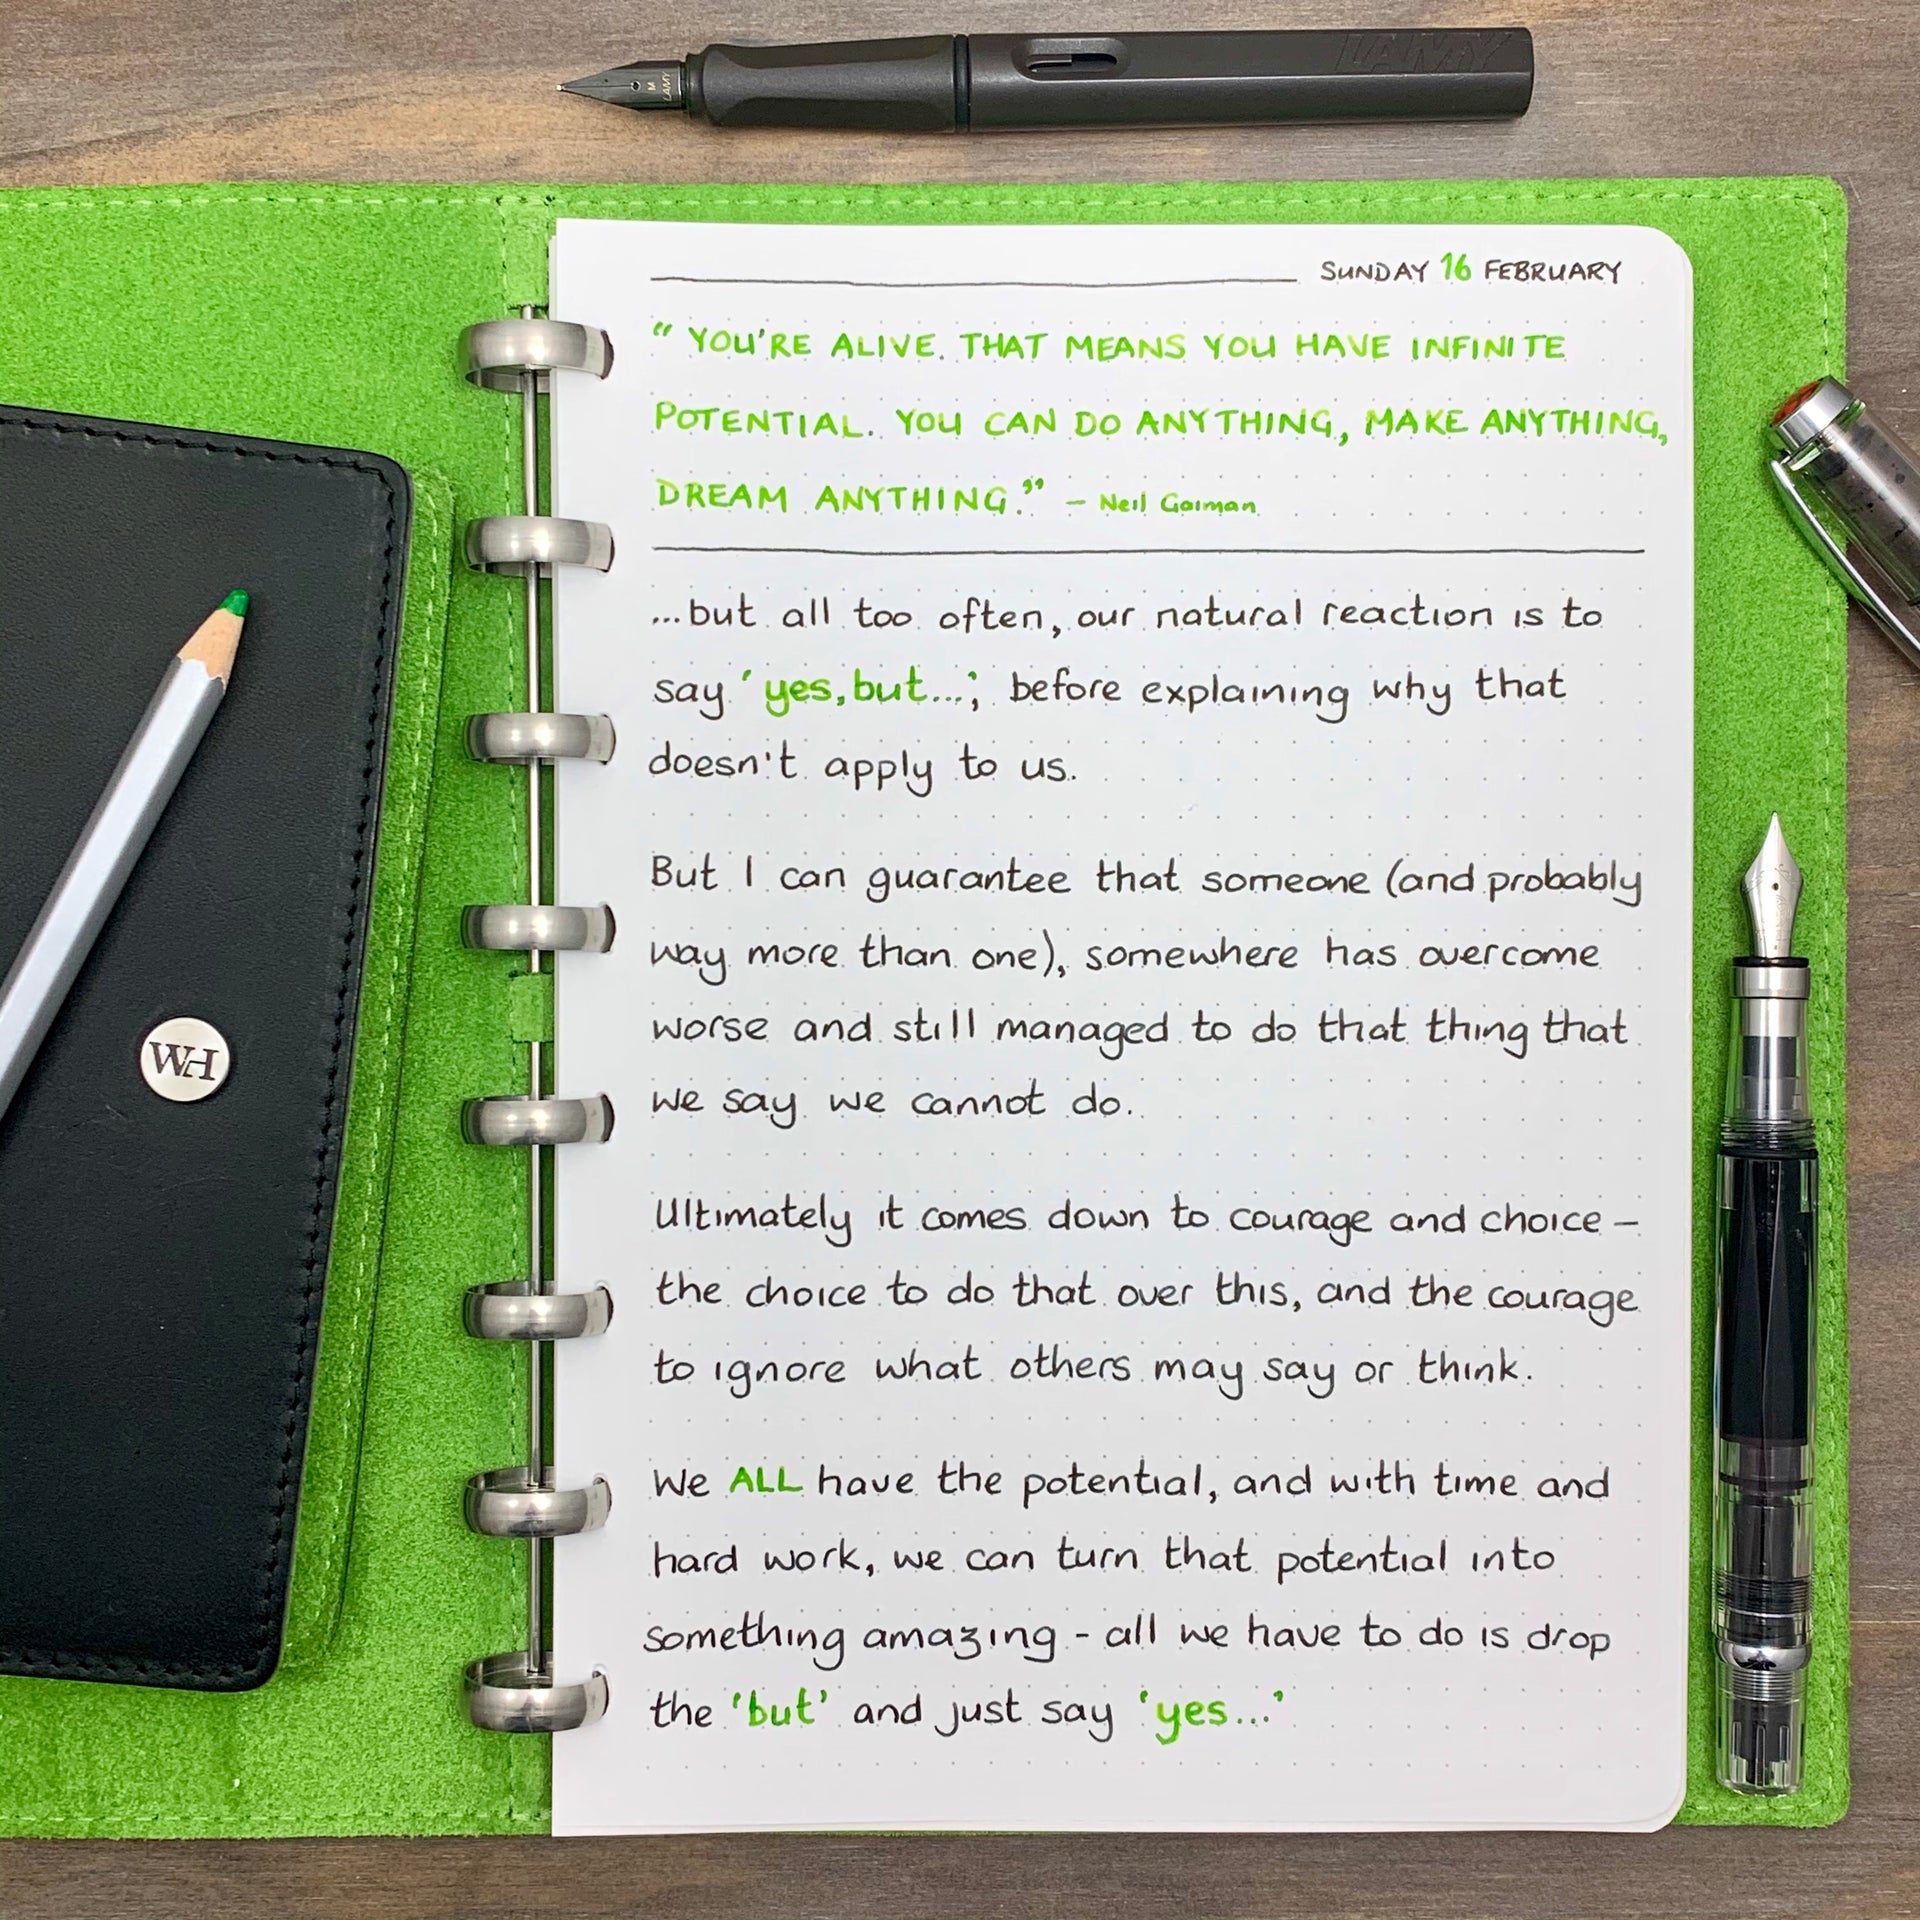 LAMY
M
LAMY
SUNDAY 16 FEBRUARY
“ YOU'RE ALIVE. THAT MEANS YOU HAVE INFINITE
POTENTIAL. YOU CAN DO ANYTHING, MAKE ANYTHING,
DREAM ANYTHING.” – Neil Gaiman
...but all too often, our natural reaction is to
say ‘yes, but...’, before explaining why that
doesn't apply to us.
But I can guarantee that someone (and probably
way more than one), somewhere has overcome
worse and still managed to do that thing that
we say we cannot do.
Ultimately it comes down to courage and choice –
the choice to do that over this, and the courage
to ignore what others may say or think.
We ALL have the potential, and with time and
hard work, we can turn that potential into
something amazing - all we have to do is drop
the ‘but’ and just say ‘yes...’
WH